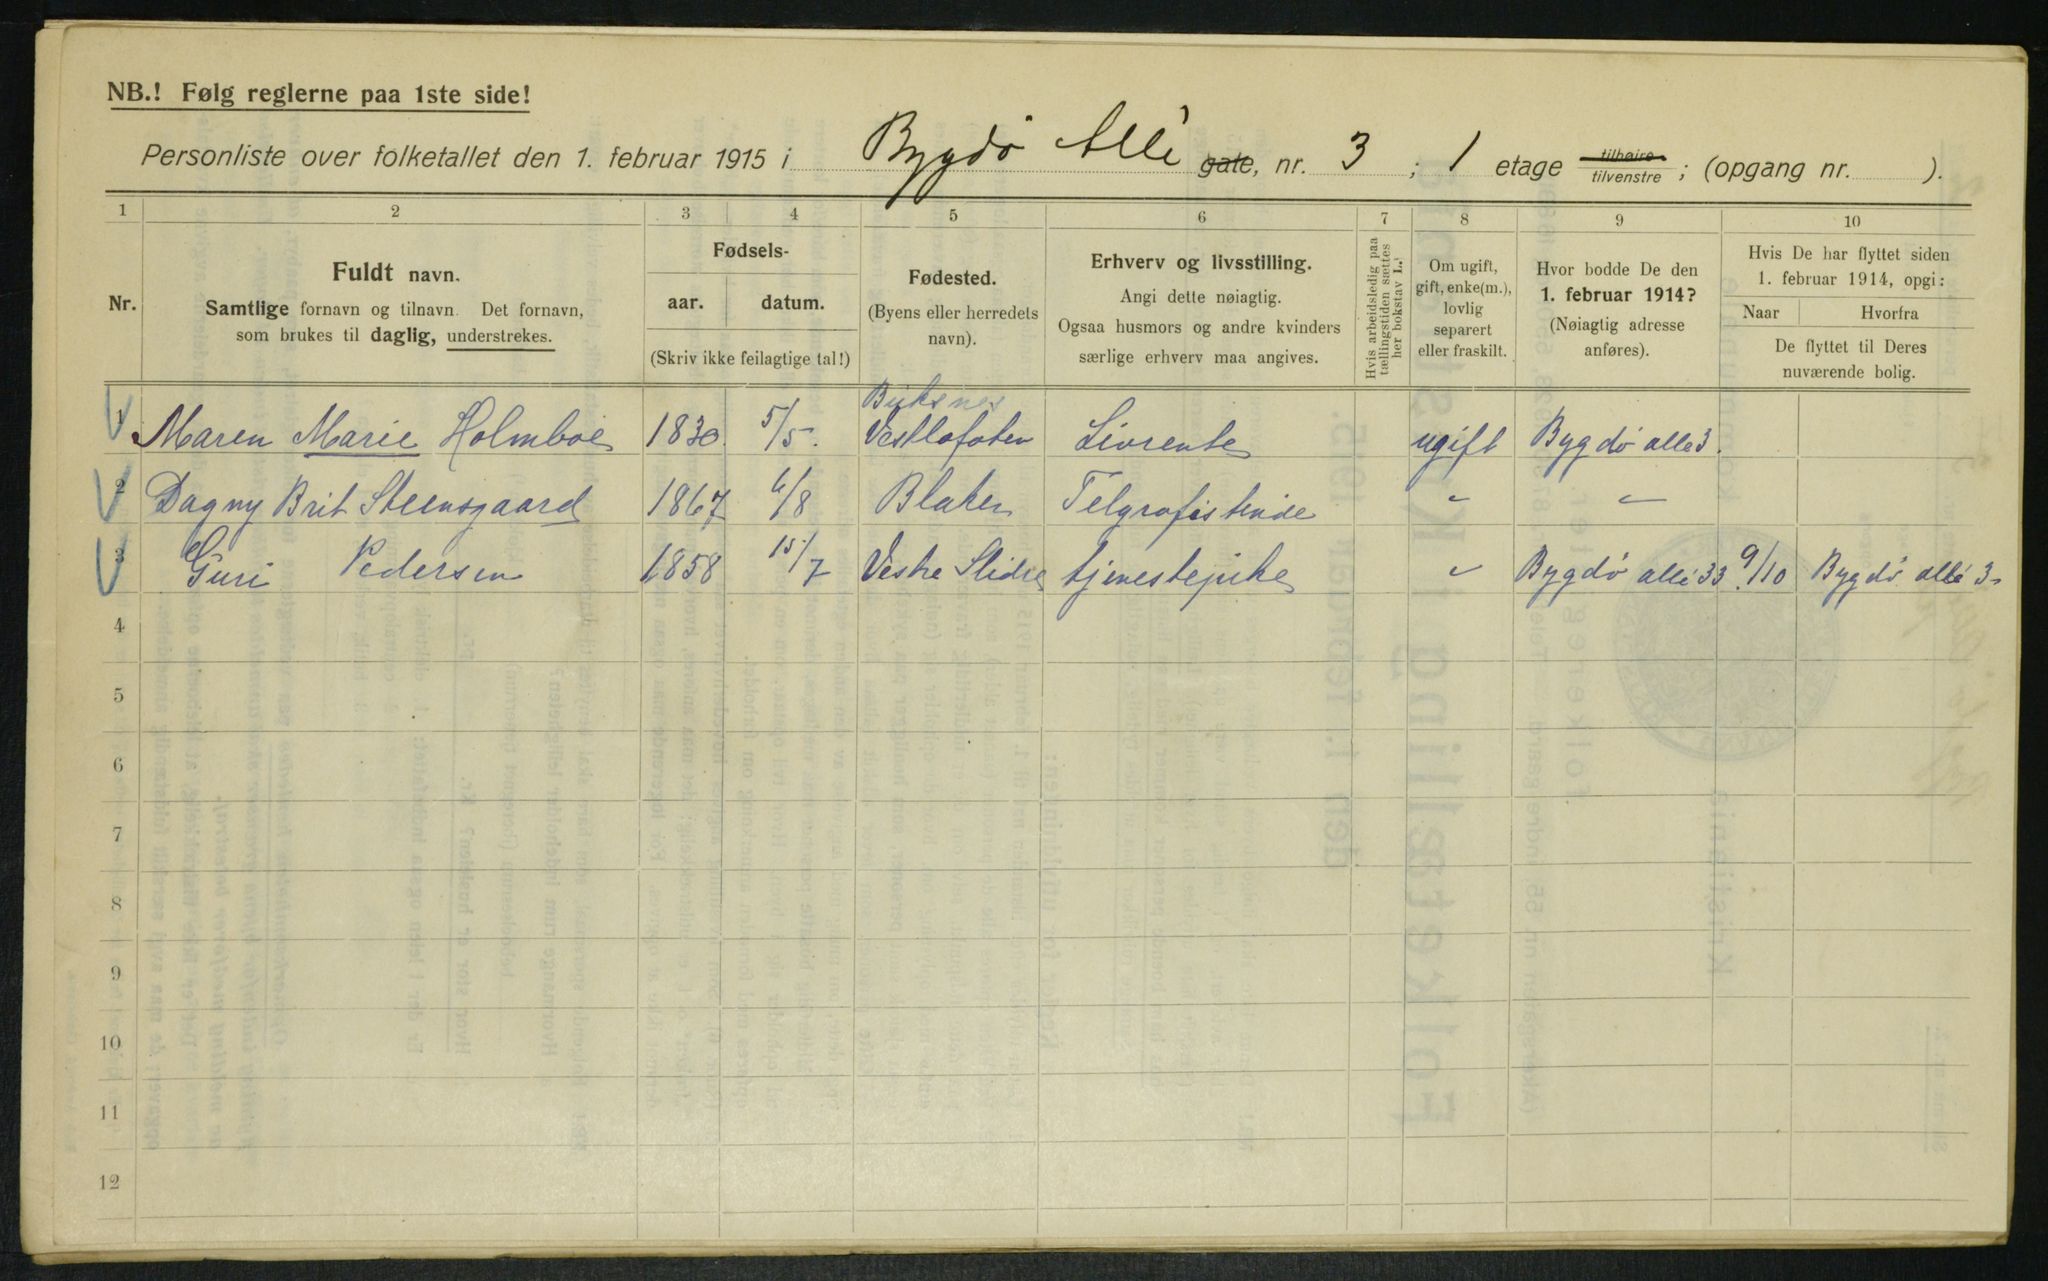 NB.! Følg reglerne paa 1ste side!
Personliste over folketallet den 1. februar 1915 i Bygdö Allé gate, nr. 3 ; 1 etage tilhøire tilvenstre ; (opgang nr. ).
1 2 3 4 5 6 7 8 9 10
Nr.
Fuldt navn.
Samtlige fornavn og tilnavn. Det fornavn,
som brukes til daglig, understrekes.
Fødsels-
aar. datum.
(Skriv ikke feilagtige tal!)
Fødested.
(Byens eller herredets
navn).
Erhverv og livsstilling.
Angi dette nøiagtig.
Ogsaa husmors og andre kvinders
særlige erhverv maa angives.
Hvis arbeidsledig paa
tællingstiden sættes
her bokstav L.
Om ugift,
gift, enke(m.),
lovlig
separert
eller fraskilt.
Hvor bodde De den
1. februar 1914?
(Nøiagtig adresse
anføres).
Hvis De har flyttet siden
1. februar 1914, opgi:
Naar Hvorfra
De flyttet til Deres
nuværende bolig.
Buksnes
1 Maren Marie Holmboe 1830. 5/5. Vestlofoten Livrente ugift Bygdö allé 3.
2 Dagny Brit Steensgaard 1867 6/8 Blaker Telgrafistinde " "
3 Guri Pedersen 1858 15/7 Vestre Slidre tjenestepike " Bygdö allé 33 9/10 Bygdö allé 3
4
5
6
7
8
9
10
11
12